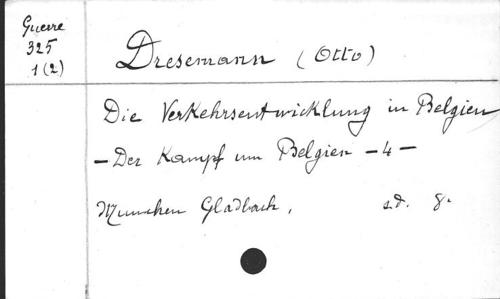 Guerre
325
1(2)
Dresemann (Otto)
Die Verkehrsentwicklung in Belgien
- Der Kampf um Belgien - 4 -
München Gladbach, s.d. 8.